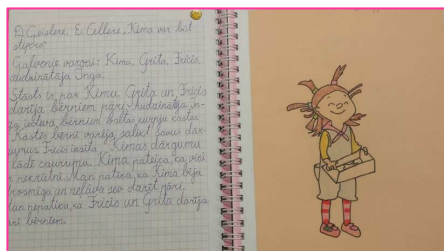 D. Geislere, E. Cellere, Kima var būt
stipra
Galvenie varoņi: Kima, Grita, Fricis,
audzinātāja Inga.
Stāsts ir par Kimu. Grita un Fricis
darīja bērniem pāri. Audzinātāja In-
ga iedeva bērniem baltas kurpju kastes.
Kastēs bērni varēja salikt savus dār-
gumus. Fricis iesita Kimas dārgumu
lādē caurumu. Kima pateica, ka viņi
ir nekrietni. Man patika, ka Kima bija
drosmīga un neļāva sev darīt pāri.
Man nepatika, ka Fricis un Grita darīja
pāri bērniem.